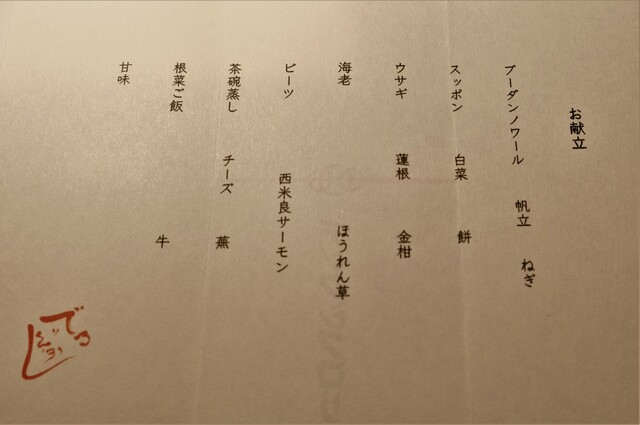 お献立
ブーダンノワール 帆立 ねぎ
スッポン 白菜 餅
ウサギ 蓮根 金柑
海老 ほうれん草
ビーツ 西米良サーモン
茶碗蒸し チーズ 蕪
根菜ご飯 牛
甘味